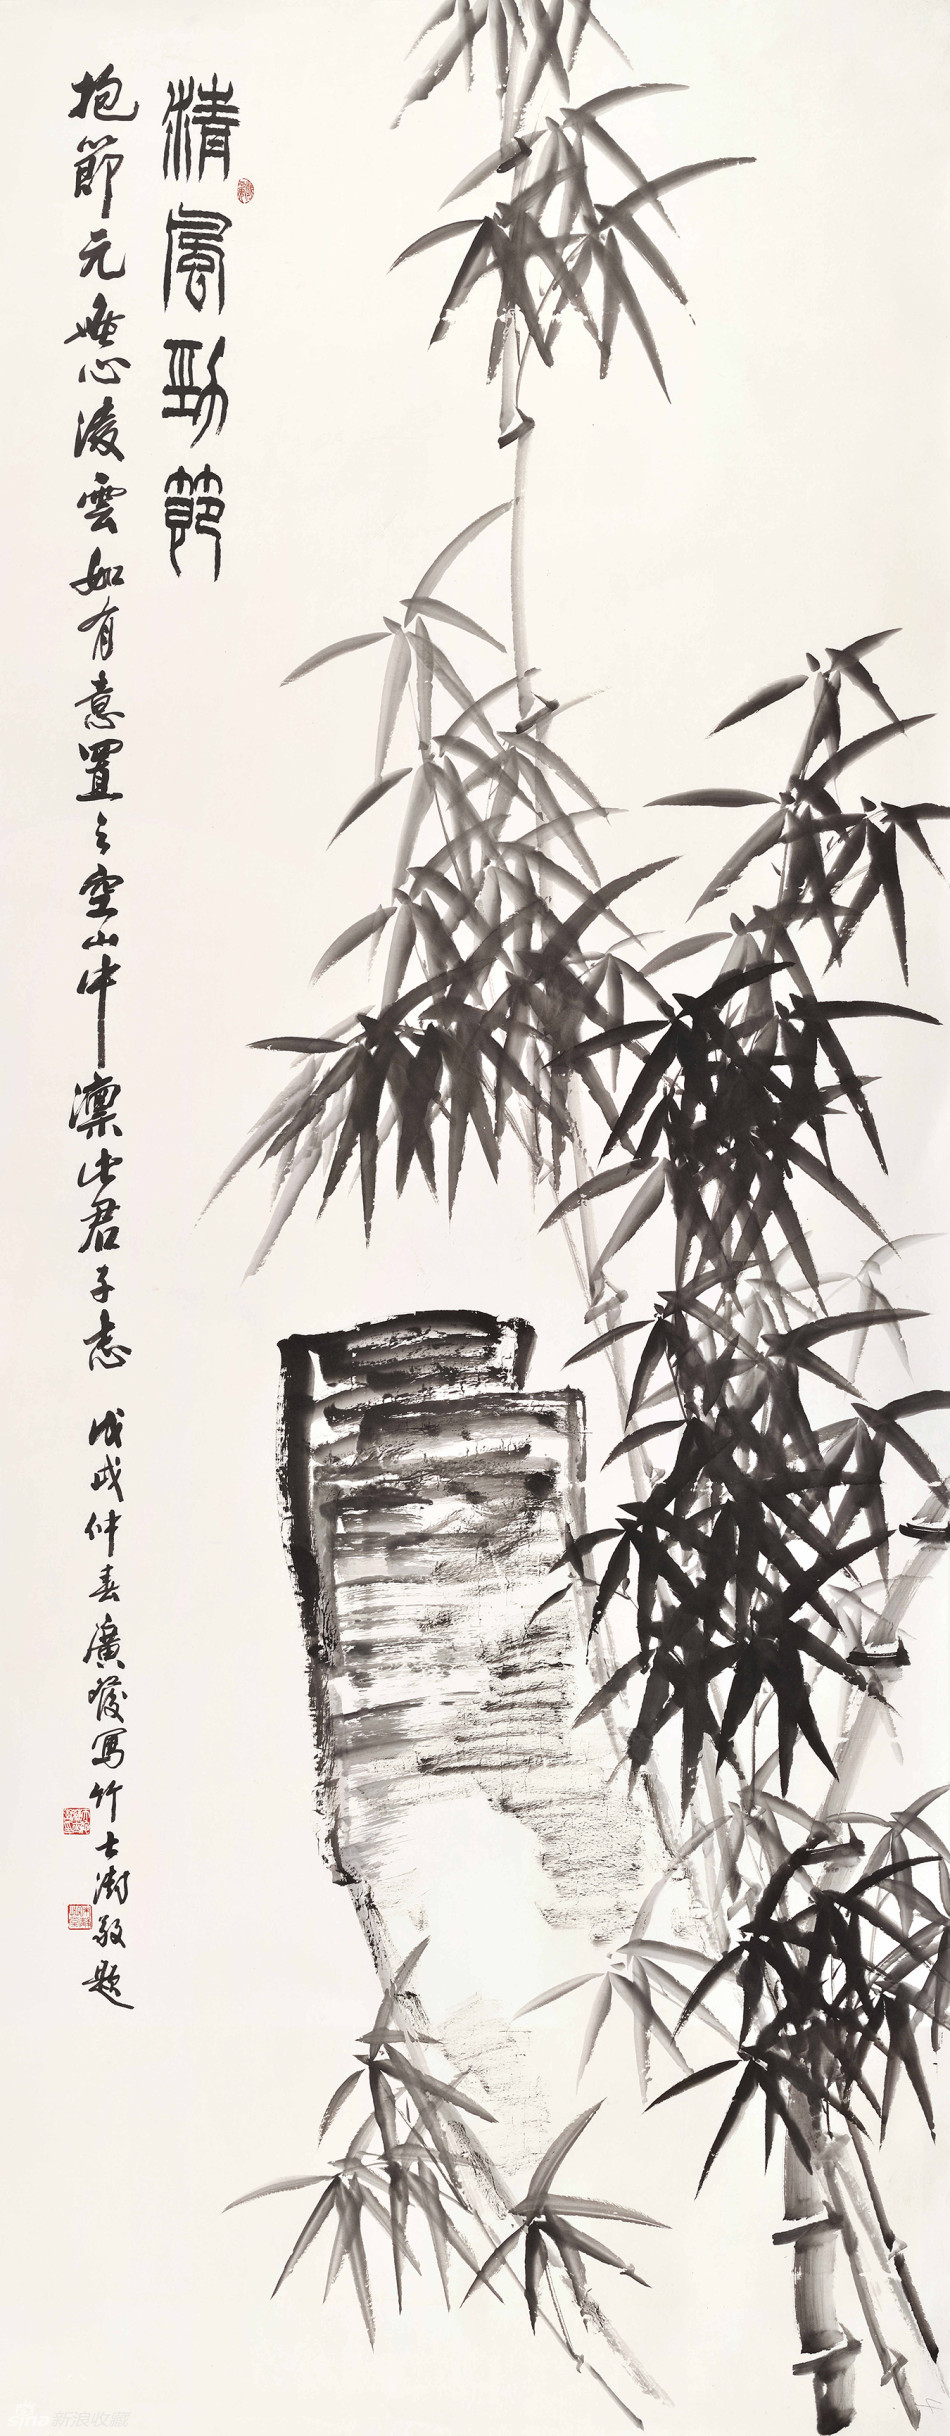 清風勁節
抱節元無心凌雲如有意置之空山中凛此君子志 戊戌仲春廣發寫竹士澍敬題
sina 新浪收藏